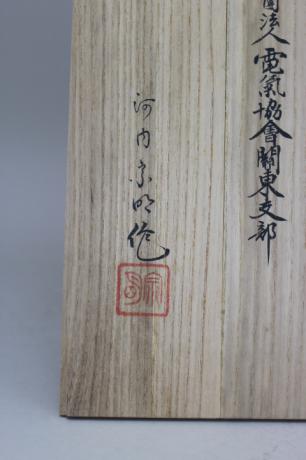 団法人電氣協會關東支部
河内宗明作
宗明